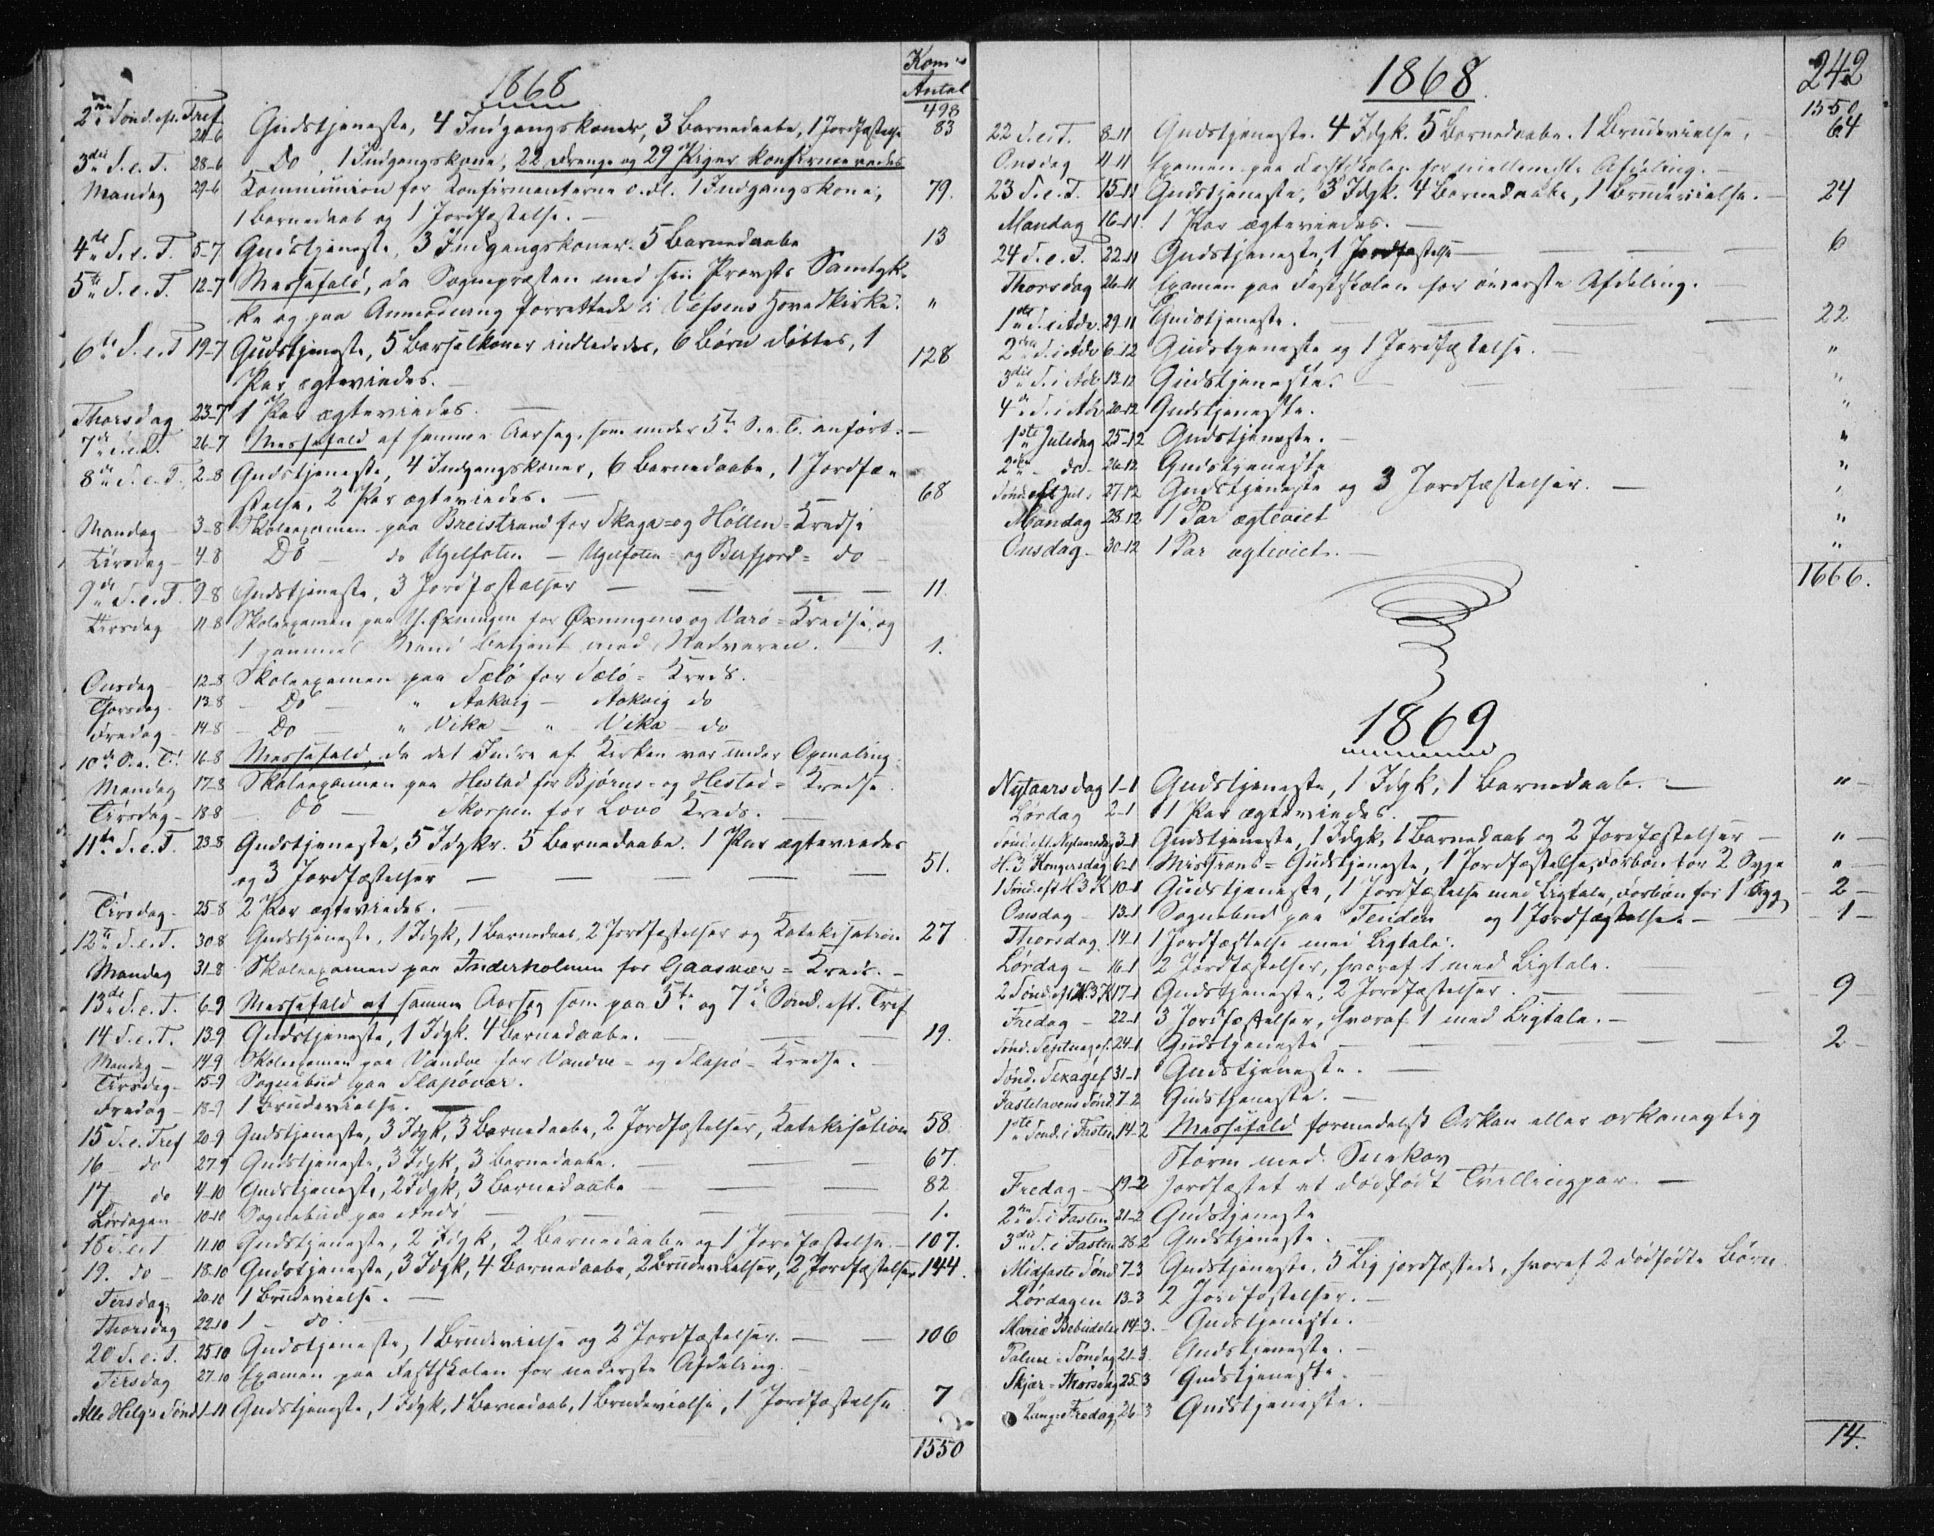 1868
Kom's
Antal
498
2den Sønd. eft. Tref. 21-6 Gudstjeneste, 4 Indgangskoner, 3 Barnedaabe, 1 Jordfæstelse 83
3die S. e. T. 28-6 Do 1 Indgangskone, 22 Drenge og 29 Piger konfirmeredes
Mandag 29-6 Kommunion for Konfirmanterne o. fl. 1 Indgangskone, 79.
1 Barnedaab og 1 Jordfæstelse. —
4de S. e. T. 5-7 Gudstjeneste, 3 Indgangskoner. 5 Barnedaabe 13
5te S. e. T. 12-7 Messefald, da Sognepræsten med Provsts Samtyk-
ke og paa Anmodning forrettede i Vefsens Hovedkirke. "
6te S. e. T 19-7 Gudstjeneste, 5 Barselkoner indlededes, 6 Børn døbtes, 1 128
Par ægteviedes. —
Thorsdag 23-7 1 Par ægteviedes. —
7de 26-7 Messefald af samme Aarsag, som under 5te S. e. T. anført. —
8de S. e. T. 2-8 Gudstjeneste, 4 Indgangskoner, 6 Barnedaabe, 1 Jordfæ-
stelse, 2 Par ægteviedes. — 68
Mandag — 3-8 Skoleexamen paa Breistrand for Skaga- og Høllen-Kredse
Tirsdag — 4-8 Do — do Ugelfoten — Ugelfoten- og Berfjord- do —
9de S. e. T. 9-8 Gudstjeneste, 3 Jordfæstelser — — — 11.
Tirsdag 11-8 Skoleexamen paa Øxningen for Øxningens og Varø-Kredse, og
1 gammel Mand betjent med Nadveren. — 1.
Onsdag — 12-8 Skoleexamen paa Sælø for Sælø-Kreds.
Thorsdag — 13-8 — Do — " Aakvig — Aakvig do
Fredag — 14-8 — Do — " Vika — " Vika — do
10de S. e. T. 16-8 Messefald, da det Indre af Kirken var under Opmaling.
Mandag 17-8 Skoleexamen paa Hestad for Bjørns- og Hestad-Kredse.
Tirsdag — 18-8 — Do — Skorpen for Lovø Kreds. —
11te S. e. T. 23-8 Gudstjeneste, 5 Idgkr. 5 Barnedaabe. 1 Par ægteviedes
og 3 Jordfæstelser — — — — 51.
Tirsdag — 25-8 2 Par ægteviedes. —
12te S. e. T. 30-8 Gudstjeneste, 1 Idgk, 1 Barnedaab, 2 Jordfæstelser og Katekisation 27
Mandag 31-8 Skoleexamen paa Inderholmen for Gaasvær-Kreds. —
13de S. e. T. 6-9 Messefald af samme Aarsag som paa 5te og 7de Sønd. eft. Tref
14 S. e. T. 13-9 Gudstjeneste, 1 Idgk. 4 Barnedaabe. — — — 19.
Mandag — 14-9 Skoleexamen paa Vandve for Vandve- og Slapø-Kredse. —
Tirsdag — 15-9 Sognebud paa Slapøvær.
Fredag — 18-9 1 Brudevielse. —
15 S. e. Tref 20-9 Gudstjeneste, 3 Idgk, 3 Barnedaabe, 2 Jordfæstelser, Katekisation 58.
16 — do 27-9 Gudstjeneste, 3 Idgk, 3 Barnedaabe. — — — 67.
17 do 4-10 Gudstjeneste, 2 Idgk, 3 Barnedaabe — — — 82
Lørdagen 10-10 Sognebud paa — — — 1.
18 S. e. T 11-10 Gudstjeneste, 2 Idgk, 2 Barnedaabe og 1 Jordfæstelse. — 107.
19. do — 18-10 Gudstjeneste, 3 Idgk, 4 Barnedaabe, 2 Brudevielser, 2 Jordfæstelser 144.
Tirsdag 20-10 1 Brudevielse. —
Thorsdag 22-10 1 — do. —
20 S. e. T. 25-10 Gudstjeneste, 1 Brudevielse og 2 Jordfæstelser. — — 106
Tirsdag 27-10 Examen paa Fastskolen for nederste Afdeling. —
Alle Helg's Sønd 1-11 Gudstjeneste, 1 Idgk, 1 Barnedaab, 1 Brudevielse, 1 Jordfæstelse 7
1550
1868.
242
1550
22 S. e. T. 8-11 Gudstjeneste. 4 Idgk. 5 Barnedaabe. 1 Brudevielse. — 64
Onsdag 11-11 Examen paa Fastskolen for mellemste Afdeling. —
23 S. e. T. 15-11 Gudstjeneste, 3 Idgk. 4 Barnedaabe, 1 Brudevielse. — 24
Mandag 16-11 1 Par ægteviedes. —
24 S. e. T. 22-11 Gudstjeneste, 1 Jordfæstelse — — — 6
Thorsdag 26-11 Examen paa Fastskolen for øverste Afdeling. —
1ste S. i Adv. 29-11 Gudstjeneste. — — — — 22
2den S. i Adv 6-12 Gudstjeneste og 1 Jordfæstelse. — "
3die S. i Adv 13-12 Gudstjeneste. — — "
4de S. i Adv 20-12 Gudstjeneste. "
1ste Juledag 25-12 Gudstjeneste. — "
2den — do — 26-12 Gudstjeneste "
Sønd. eft Jul. 27-12 Gudstjeneste og 3 Jordfæstelser. — "
Mandag 28-12 1 Par ægteviet "
Onsdag — 30-12 1 Par ægteviet. — "
1666.
1869
Nytaarsdag 1-1 Gudstjeneste, 1 Idgk, 1 Barnedaab. — " —
Lørdag 2-1 1 Par ægteviedes. —
Sønd. eft. Nytaarsdag 3-1 Gudstjeneste, 1 Idgk, 1 Barnedaab og 2 Jordfæstelser — " —
H. 3 Kongersdag 6-1 Missions-Gudstjeneste, 1 Jordfæstelse, Forbøn for 2 Syge " —
1 Sønd. eft H 3 K 10-1 Gudstjeneste, 1 Jordfæstelse med Ligtale, Forbøn for 1 Syg — 2 —
Onsdag — 13-1 Sognebud paa Tenden og 1 Jordfæstelse — — 1 —
Thorsdag 14-1 1 Jordfæstelse med Ligtale.
Lørdag — 16-1 2 Jordfæstelser, hvoraf 1 med Ligtale. —
2 Sønd. eft H. 3 K 17-1 Gudstjeneste, 2 Jordfæstelser. — — 9 —
Fredag — 22-1 3 Jordfæstelser, hvoraf 1 med Ligtale. —
Sønd. Septuages. 24-1 Gudstjeneste — — — — 2 —
Sønd. Sexagef 31-1 Gudstjeneste. —
Fastelavens Sønd. 7-2 Gudstjeneste. —
1ste Sønd. i Fasten 14-2 Messefald formedelst Orkan eller orkanagtig
Storm med Snekov
Fredag — 19-2 Jordfæstet et dødfødt Tvillingpar. —
2den S. i Fasten 21-2 Gudstjeneste
3die S. i Fasten 28-2 Gudstjeneste. —
Midfaste Sønd 7-3 Gudstjeneste. 5 Lig jordfæstede, hvoraf 2 dødfødte Børn
Lørdagen 13-3 2 Jordfæstelser. —
Mariæ Bebudelse 14-3. — Gudstjeneste. —
Palme-Søndag 21-3 Gudstjeneste. —
Skjær-Thorsdag 25-3 Gudstjeneste. —
Lang-Fredag 26-3 Gudstjeneste. —
14.